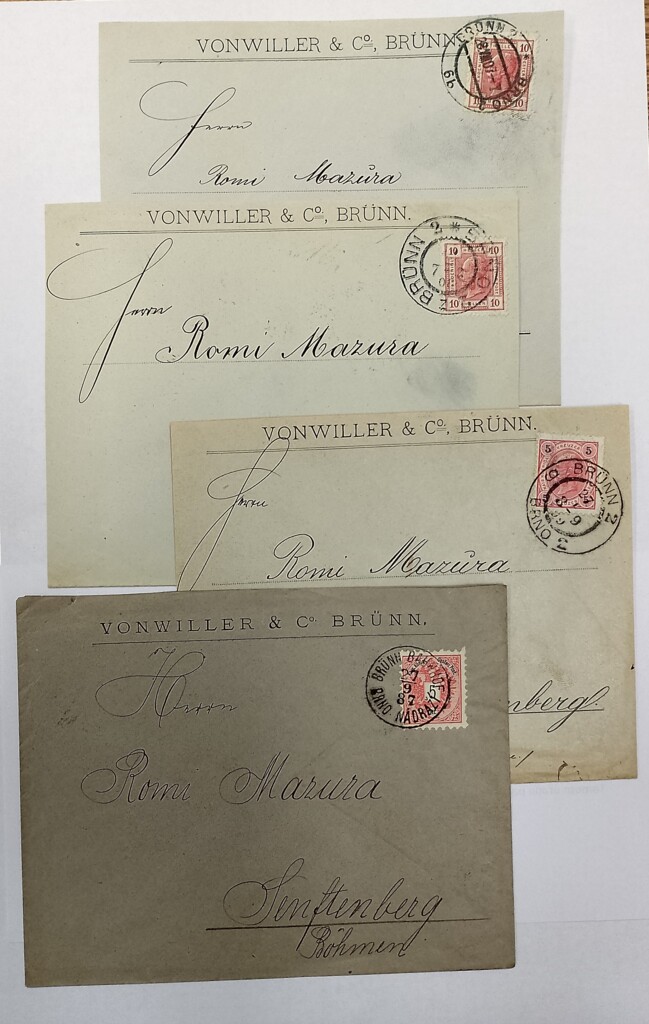 VONWILLER & Cº, BRÜNN
BRÜNN 2
BRNO 2
6b
10 10
10 10
Herrn
Romi Mazura
VONWILLER & Cº, BRÜNN.
BRÜNN 2
10
10 10
Herrn
Romi Mazura
VONWILLER & Cº, BRÜNN.
5 5
BRÜNN 2
BRNO 2
Herrn
Romi Mazura
nberg
VONWILLER & Cº BRÜNN.
BRÜNN BAHNHOF
27
9
87
BRNO NÁDRAŽÍ
5
Herrn
Romi Mazura
Senftenberg
Böhmen